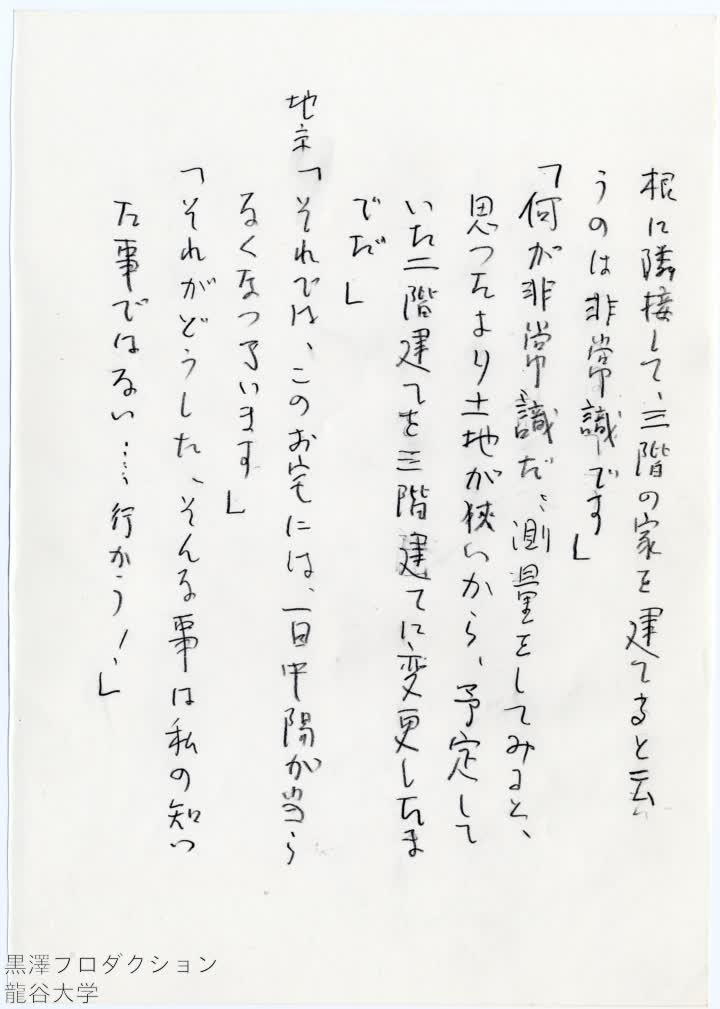 根に隣接して、三階の家を建てると云
うのは非常識です」
「何が非常識だ、測量をしてみると、
思ったより土地が狭いから、予定して
いた二階建てを三階建てに変更したま
でだ」
地京「それでは、このお宅には、一日中陽が当ら
なくなっています」
「それがどうした、そんな事は私の知っ
た事ではない……行かう！」
黒澤プロダクション
龍谷大学